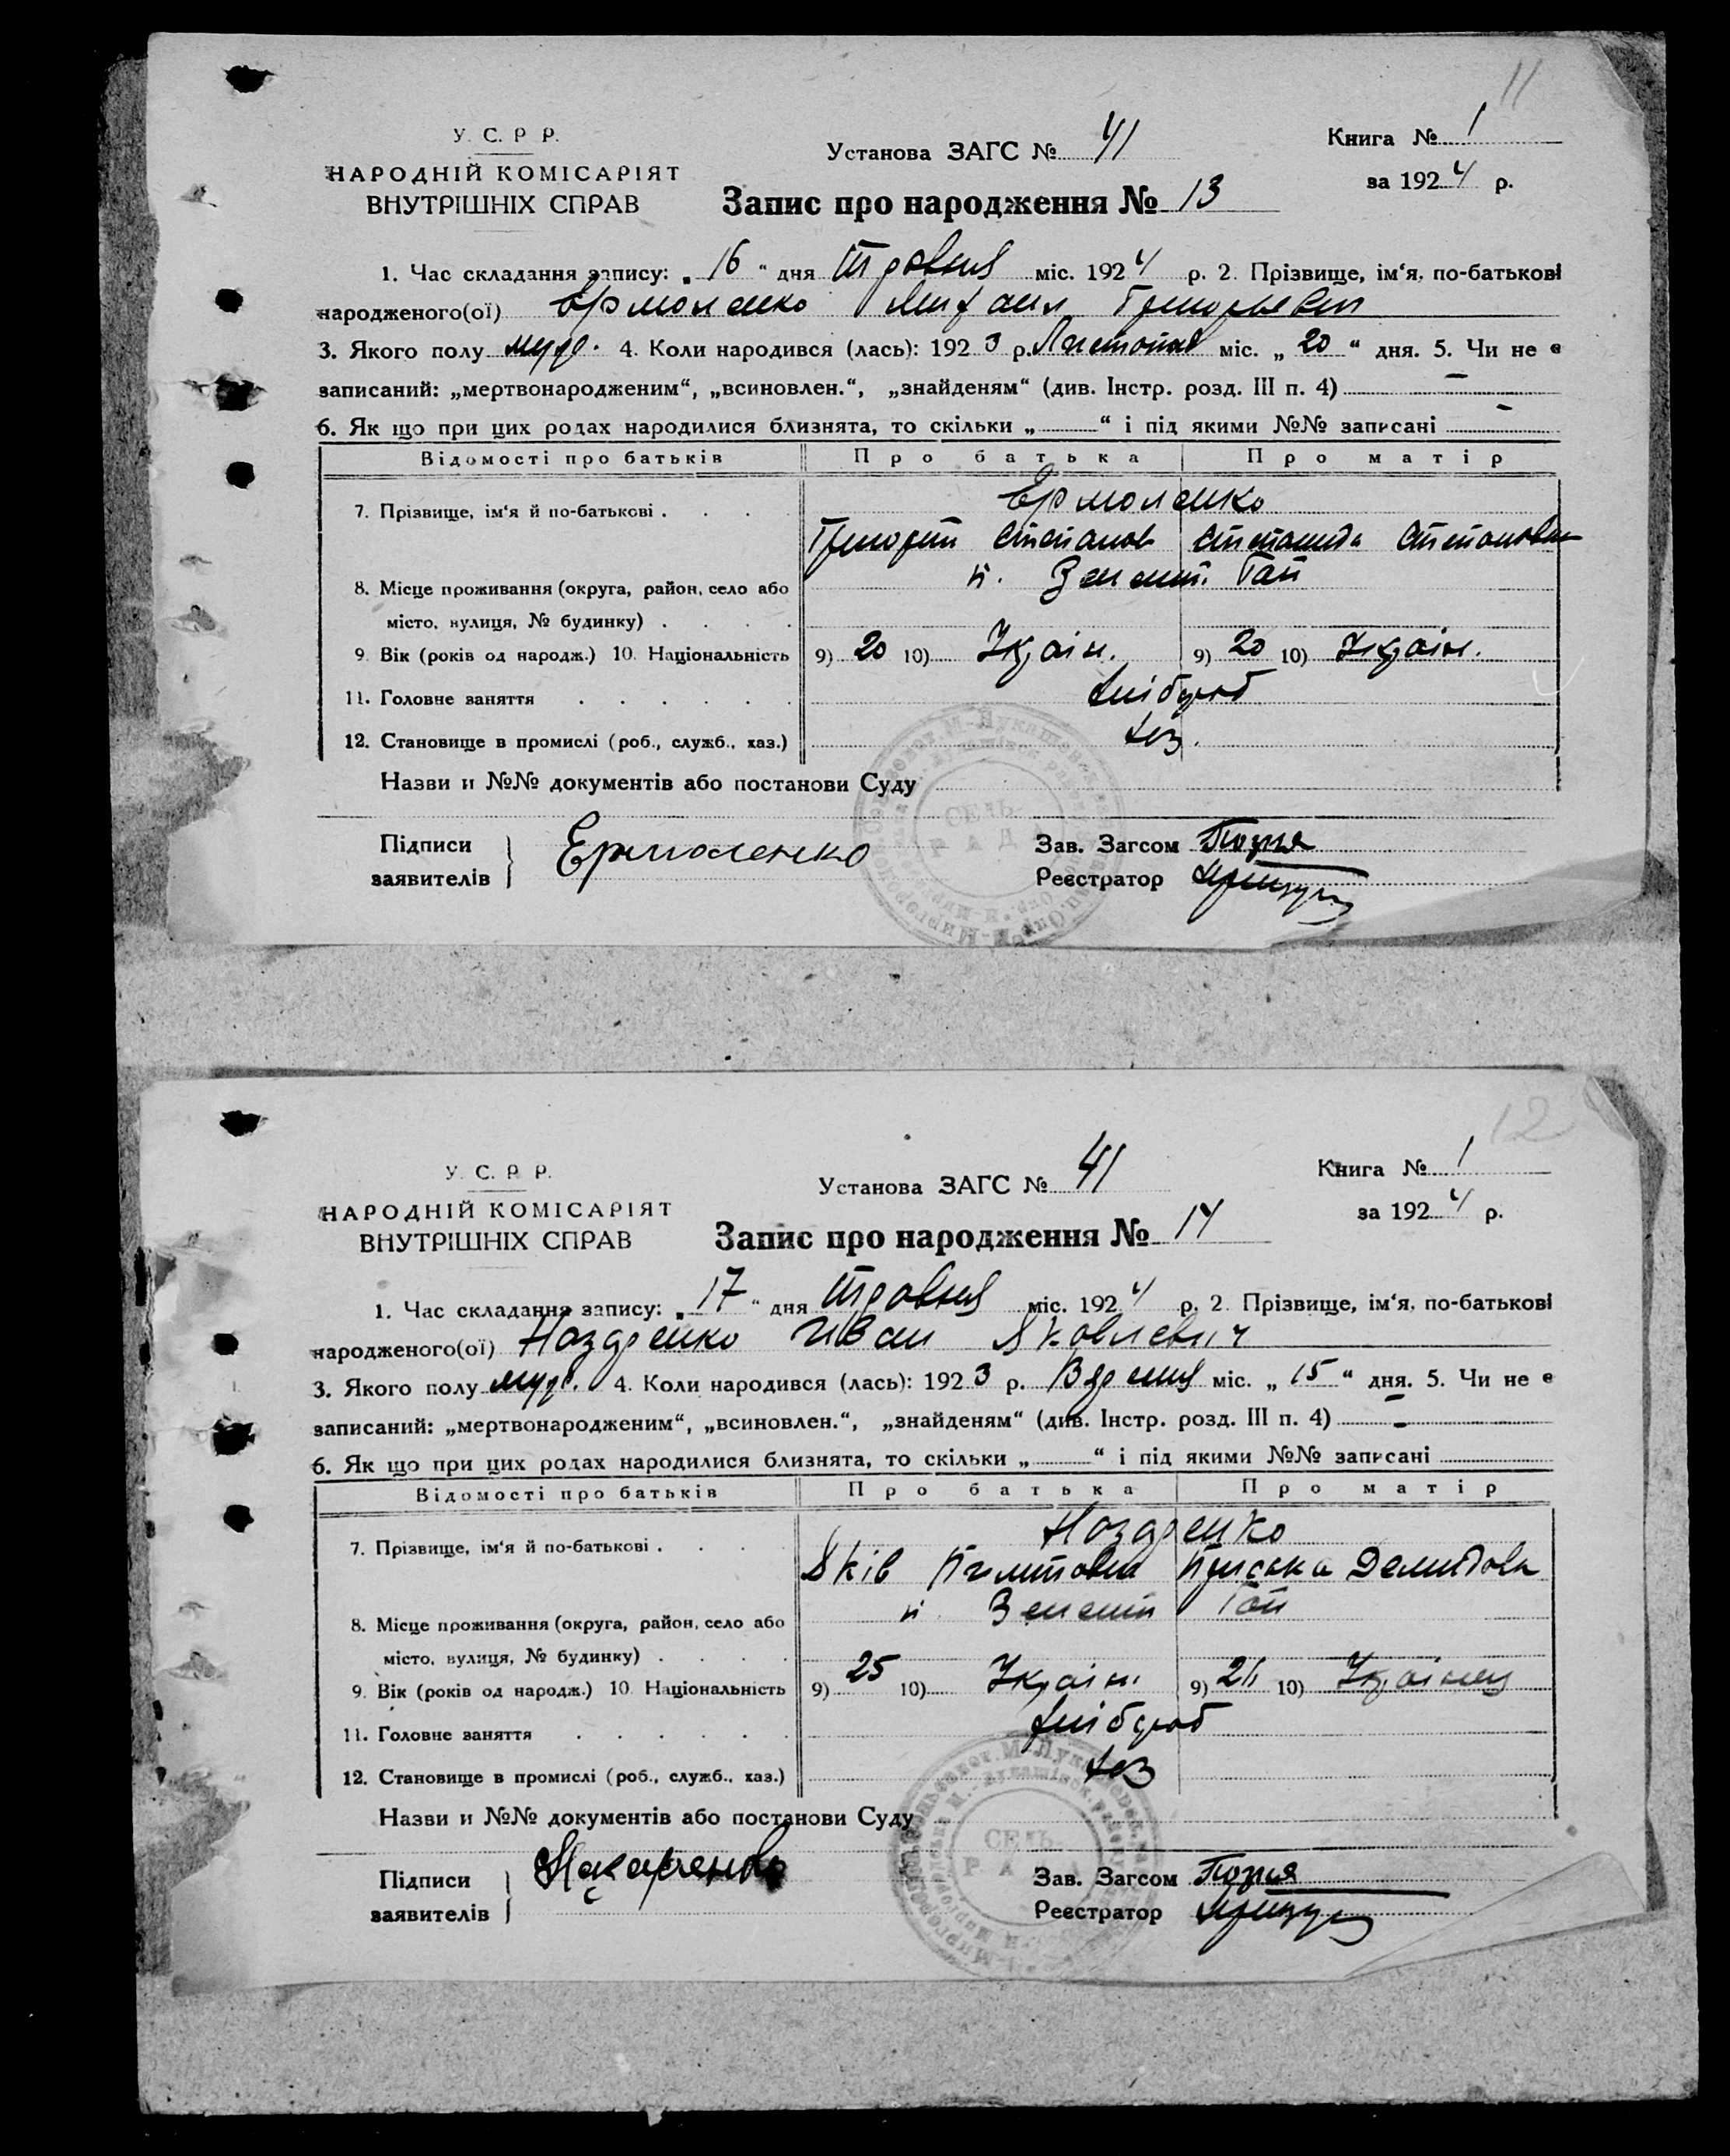 11
У. С. Р. Р.
НАРОДНІЙ КОМІСАРІЯТ
ВНУТРІШНІХ СПРАВ
Установа ЗАГС № 41
Книга № 1
за 1924 р.
Запис про народження № 13
1. Час складання запису: „ 16 “ дня Травня міс. 1924 р. 2. Прізвище, ім‘я, по-батькові
народженого(ої) Ермоленко Михаил Григорьевич
3. Якого полу муж. 4. Коли народився (лась): 1923 р. Листопад міс. „ 20 “ дня. 5. Чи не є
записаний: „мертвонародженим“, „всиновлен.“, „знайденям“ (див. Інстр. розд. III п. 4) —
6. Як що при цих родах народилися близнята, то скільки „ “ і під якими №№ записані —
Відомості про батьків Про батька Про матір
7. Прізвище, ім‘я й по-батькові . . . . Ермоленко
Григорій Степанов Степанида Степановн
8. Місце проживання (округа, район, село або
х. Зелений Гай
місто, вулиця, № будинку) . . . .
9. Вік (років од народж.) 10. Національність 9) 20 10) Україн. 9) 20 10) Україн.
11. Головне заняття . . . . . . хлібороб
12. Становище в промислі (роб., служб., хаз.) хаз.
Назви и №№ документів або постанови Суду
Підписи
заявителів
Ермоленко
СЕЛЬ-
РАДА
Зав. Загсом
Реєстратор
12
У. С. Р. Р.
НАРОДНІЙ КОМІСАРІЯТ
ВНУТРІШНІХ СПРАВ
Установа ЗАГС № 41
Книга № 1
за 1924 р.
Запис про народження № 14
1. Час складання запису: „ 17 “ дня Травня міс. 1924 р. 2. Прізвище, ім‘я, по-батькові
народженого(ої) Назаренко Иван Яковлевич
3. Якого полу муж. 4. Коли народився (лась): 1923 р. Вересня міс. „ 15 “ дня. 5. Чи не є
записаний: „мертвонародженим“, „всиновлен.“, „знайденям“ (див. Інстр. розд. III п. 4) —
6. Як що при цих родах народилися близнята, то скільки „ “ і під якими №№ записані
Відомості про батьків Про батька Про матір
7. Прізвище, ім‘я й по-батькові . . . . Назаренко
Яків Пилипович Приська Демидовн
8. Місце проживання (округа, район, село або
х Зелений Гай
місто, вулиця, № будинку) . . . .
9. Вік (років од народж.) 10. Національність 9) 25 10) Україн. 9) 10)
11. Головне заняття . . . . . . хлібороб
12. Становище в промислі (роб., служб., хаз.) хаз
Назви и №№ документів або постанови Суду
Підписи
заявителів
СЕЛЬ-
РАДА
Зав. Загсом
Реєстратор